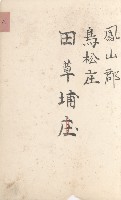 鳳山郡
鳥松庄
田草埔庄